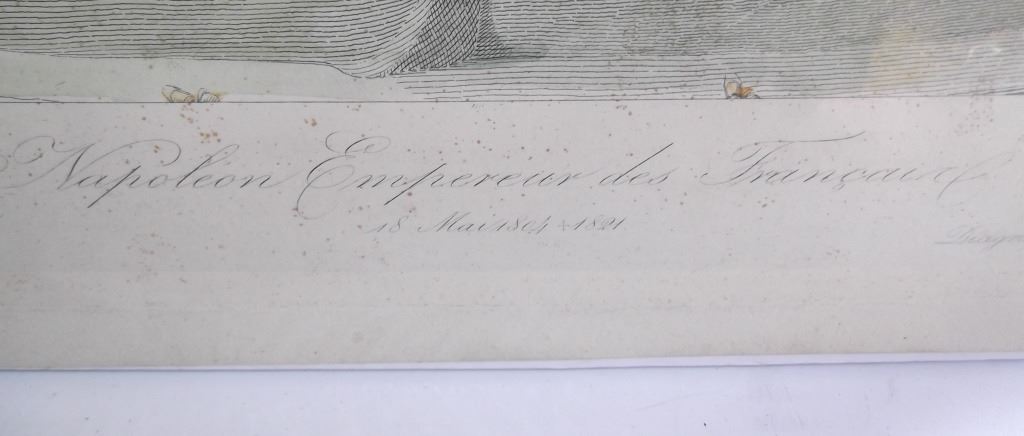 Napoléon Empereur des Français
18 Mai 1804 - 1821